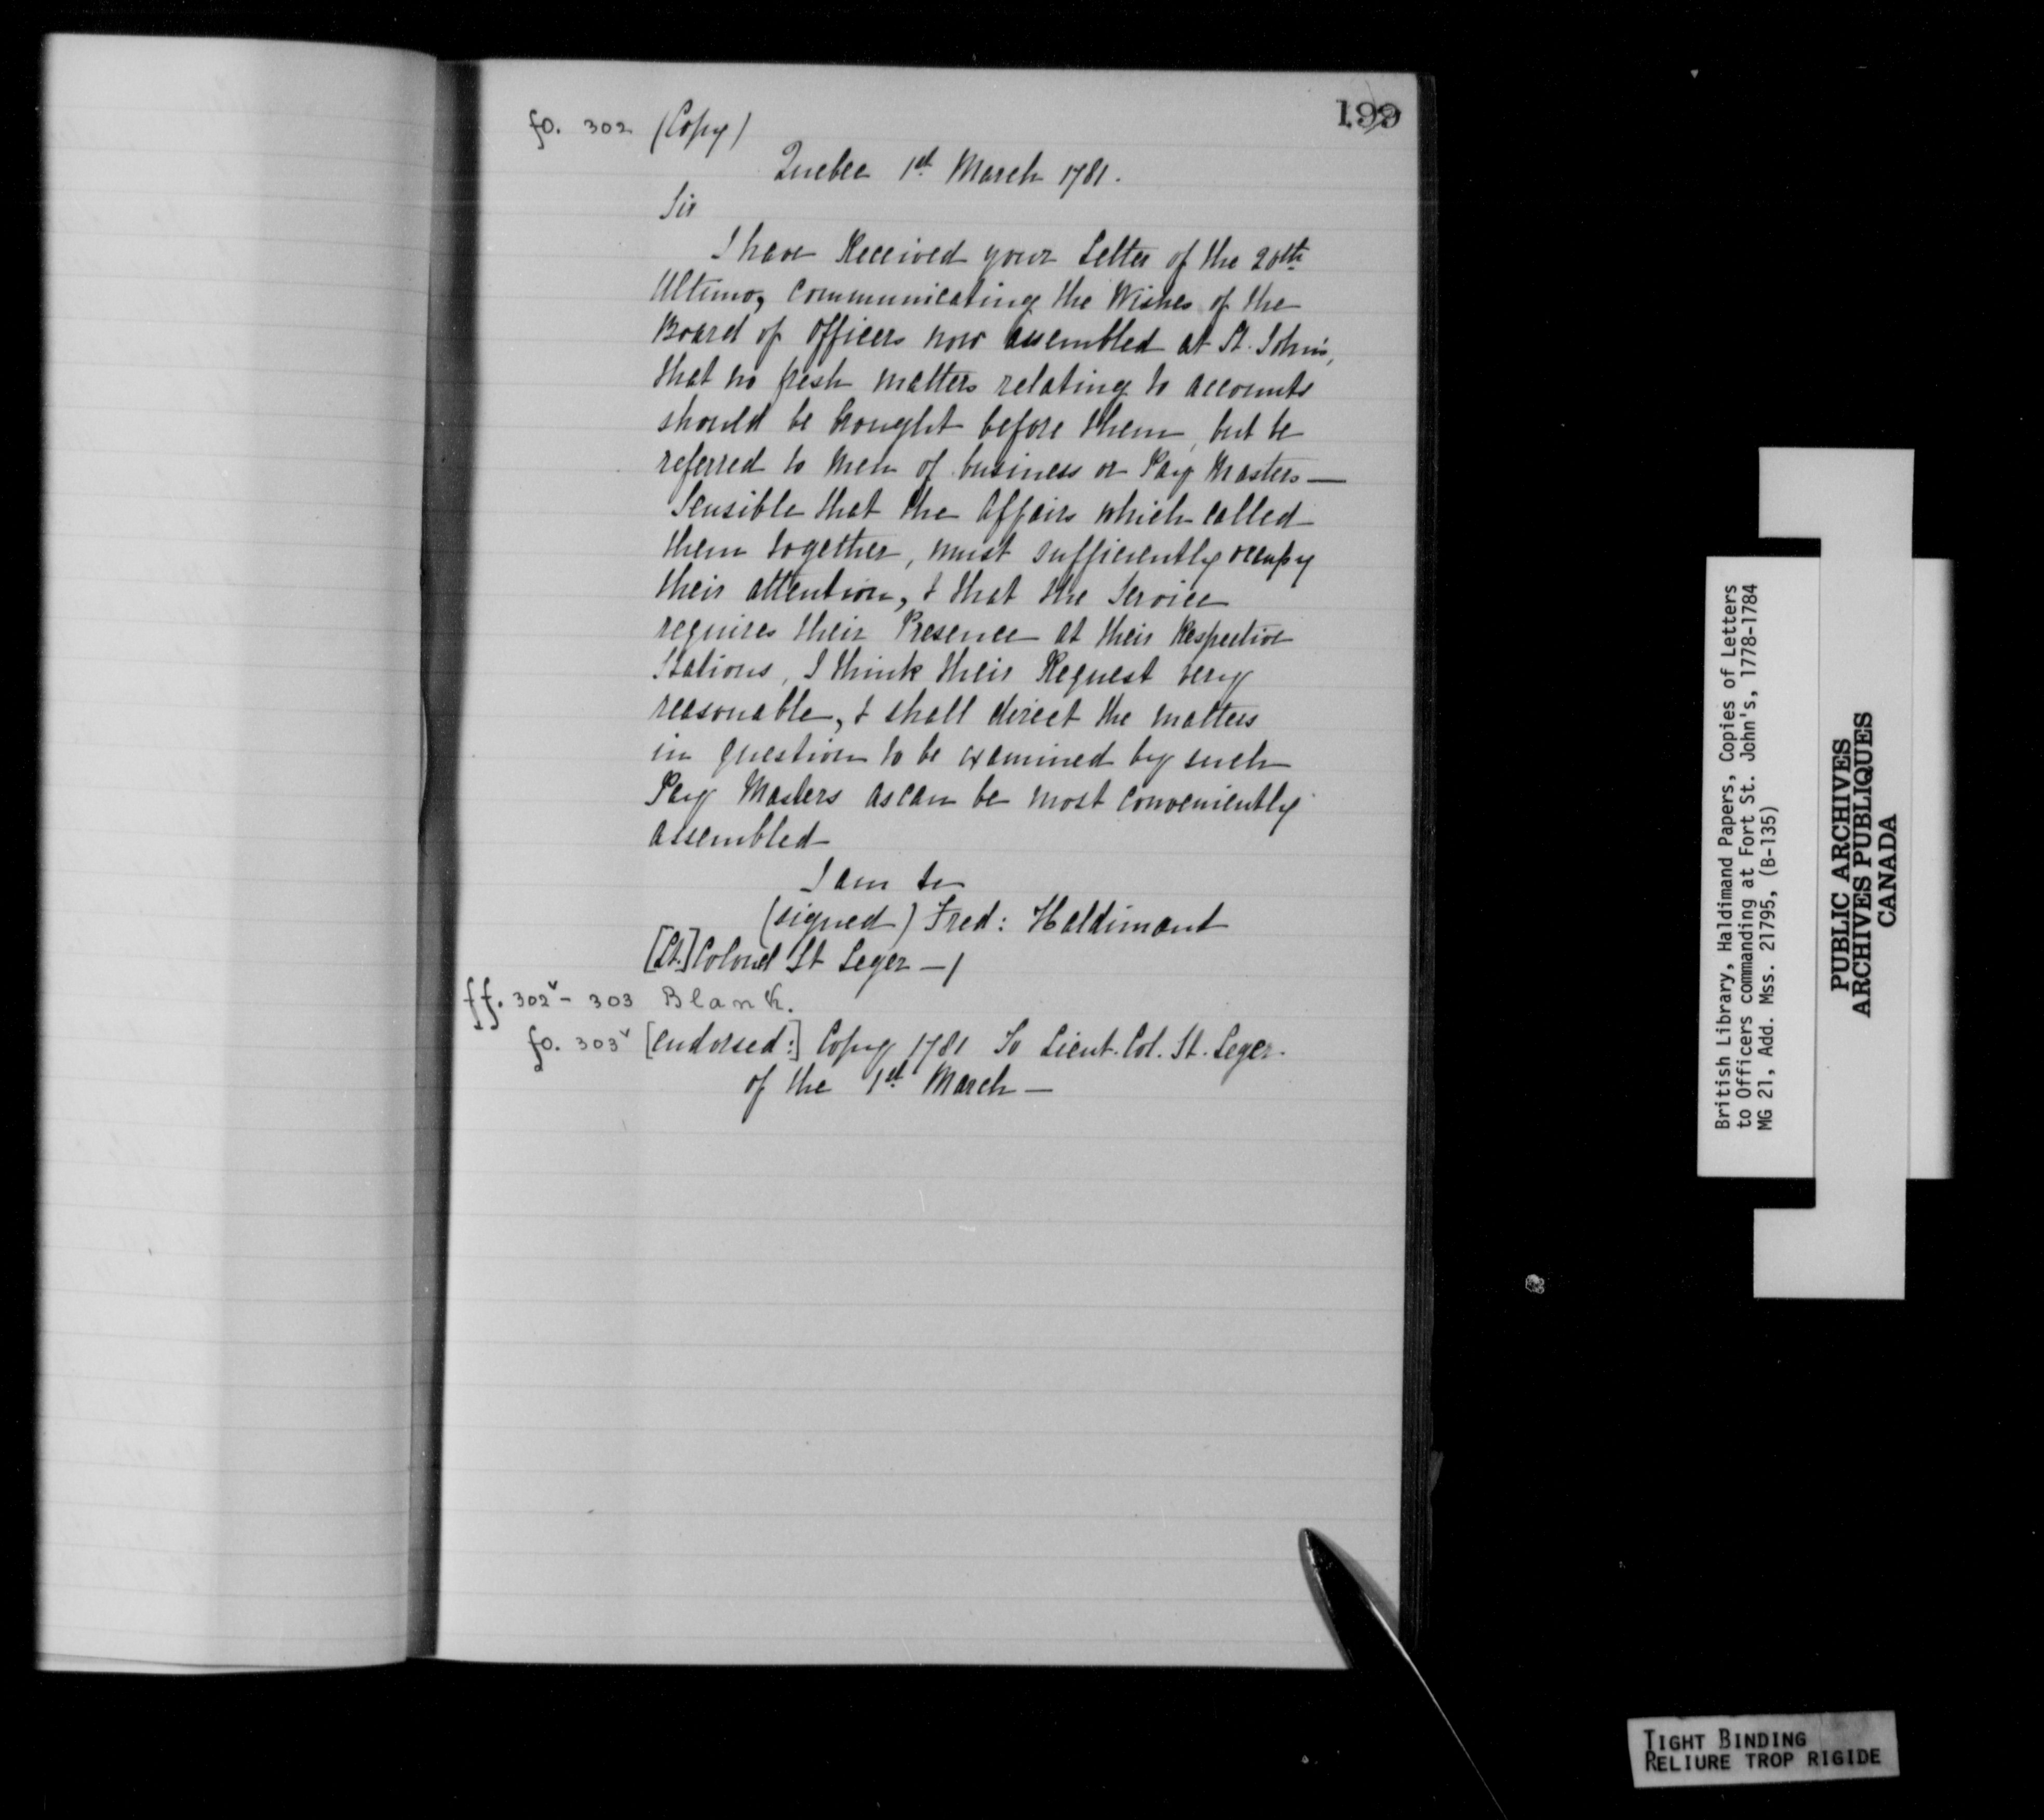 199
fo. 302 (Copy)
Quebec 1st March 1781.
Sir
I have Received your Letter of the 20th
Ultimo, communicating the Wishes of the
Board of Officers now assembled at St. John's,
that no fresh matters relating to accounts
should be brought before them, but be
referred to men of business or Pay Masters —
Sensible that the Affairs which called
them together, must sufficiently occupy
their attention, & that the Service
requires their Presence at their Respective
Stations, I think their Request very
reasonable, & shall direct the matters
in question to be examined by such
Pay Masters as can be most conveniently
assembled
I am &c
(signed) Fred: Haldimand
[Lt.] Colonel St Leger —/
ff. 302v - 303 Blank.
fo. 303v [endorsed:] Copy 1781 To Lieut. Col. St. Leger.
of the 1st March —
British Library, Haldimand Papers, Copies of Letters
to Officers commanding at Fort St. John's, 1778-1784
MG 21, Add. Mss. 21795, (B-135)
PUBLIC ARCHIVES
ARCHIVES PUBLIQUES
CANADA
TIGHT BINDING
RELIURE TROP RIGIDE